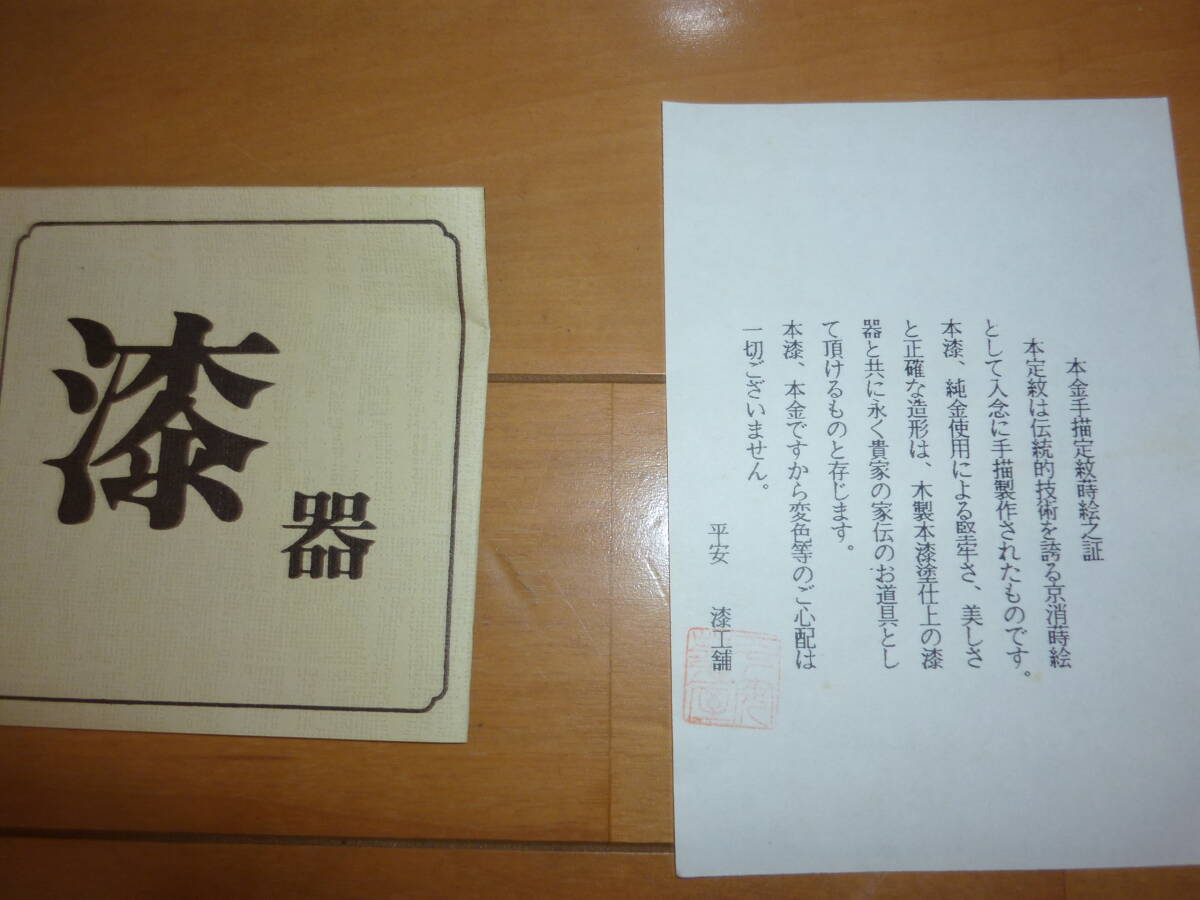 漆
器
本金手描定紋蒔絵之証
本定紋は伝統的技術を誇る京消蒔絵
として入念に手描製作されたものです。
本漆、純金使用による堅牢さ、美しさ
と正確な造形は、木製本漆塗仕上の漆
器と共に永く貴家の家伝のお道具とし
て頂けるものと存じます。
本漆、本金ですから変色等のご心配は
一切ございません。
平安 漆工舗